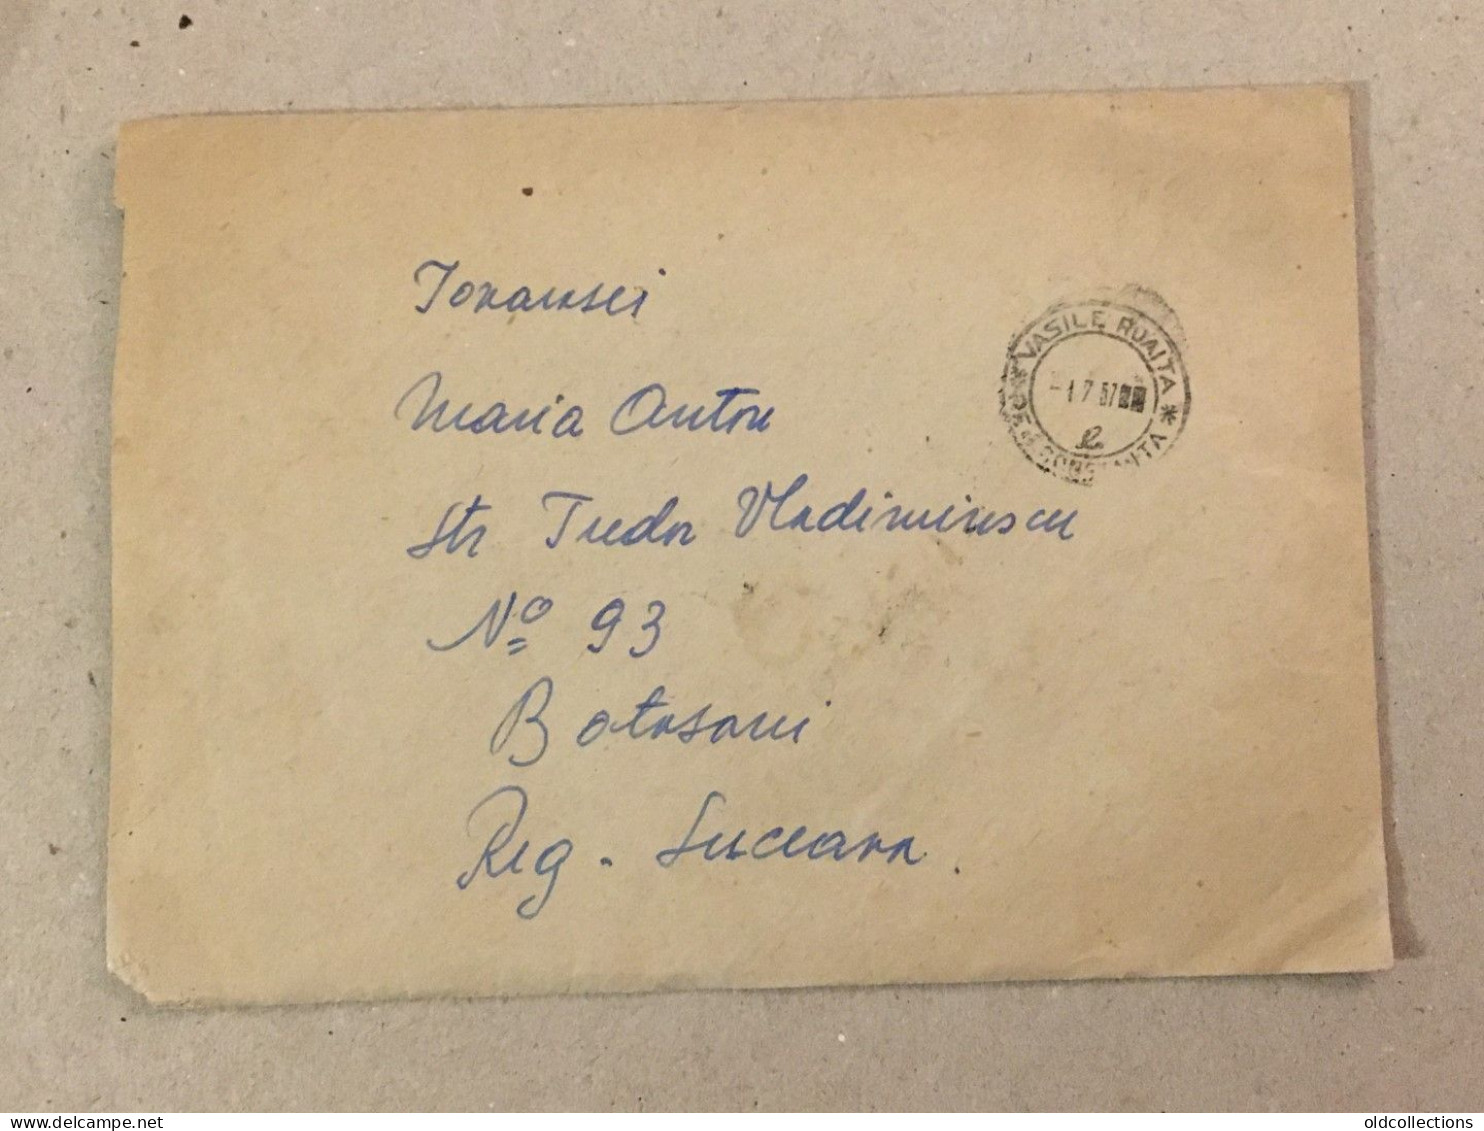 Tovarasei
Maria Anton
Str Tudor Vladimirescu
Nº 93
Botosani
Reg. Suceava.
* VASILE ROAITA *
-1.7.57
CONSTANTA
oldcollections